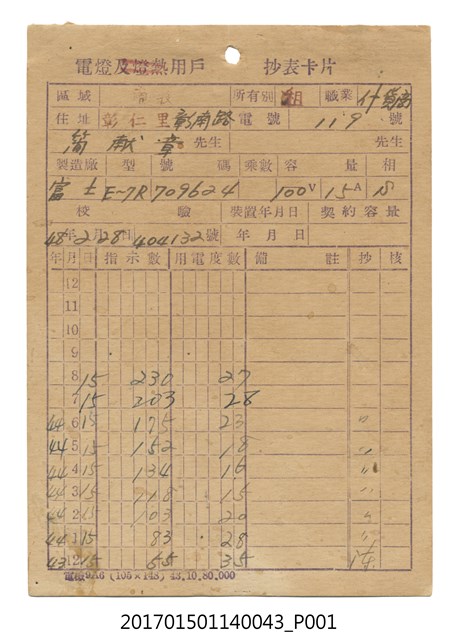 電燈及燈熱用戶 抄表卡片
區域 所有別 職業 什貨商
住址 彰仁里彰南路 電號 119 號
簡献章 先生 先生
製造廠 型號 號碼 乘數 容量 相
富士 E-7R 709624 100V 15A
校驗 裝置年月日 契約容量
48年2月28日 404132號 年月日
年月日 指示數 用電度數 備註 抄 核
12
11
10
9
8 15 230 27
7 15 203 28
44 6 15 175 23 〃
44 5 15 152 18 〃
44 4 15 134 16 〃
44 3 15 118 15 〃
44 2 15 103 20 〃
44 1 15 83 28 〃
43 12 15 55 35
(105×148) 43.10.80.000
201701501140043_P001